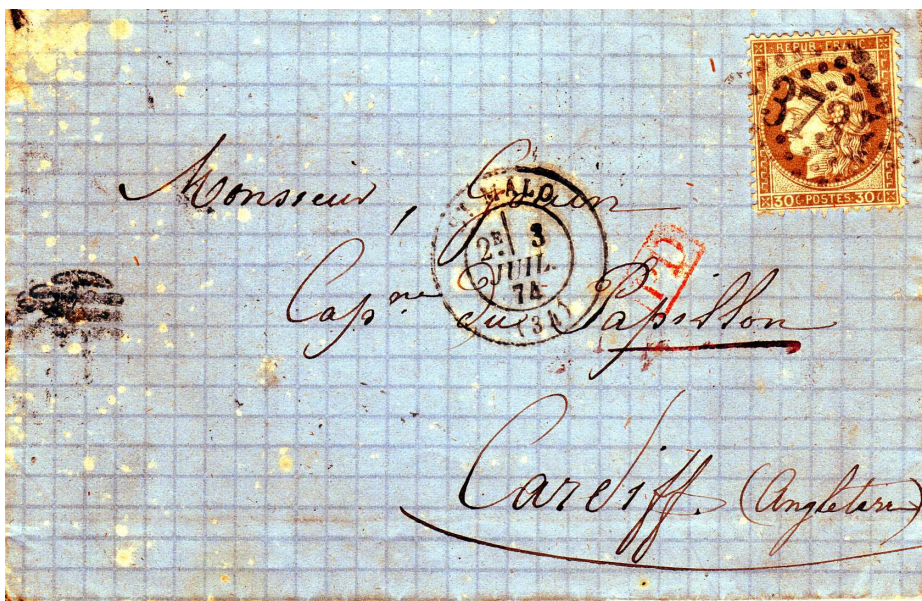 REPUB·FRANC
30C·POSTES·30C
Monsieur,
MALO
2E 3
JUIL.
74
(34)
PD
Capne du Papillon
Cardiff. (Angleterre)